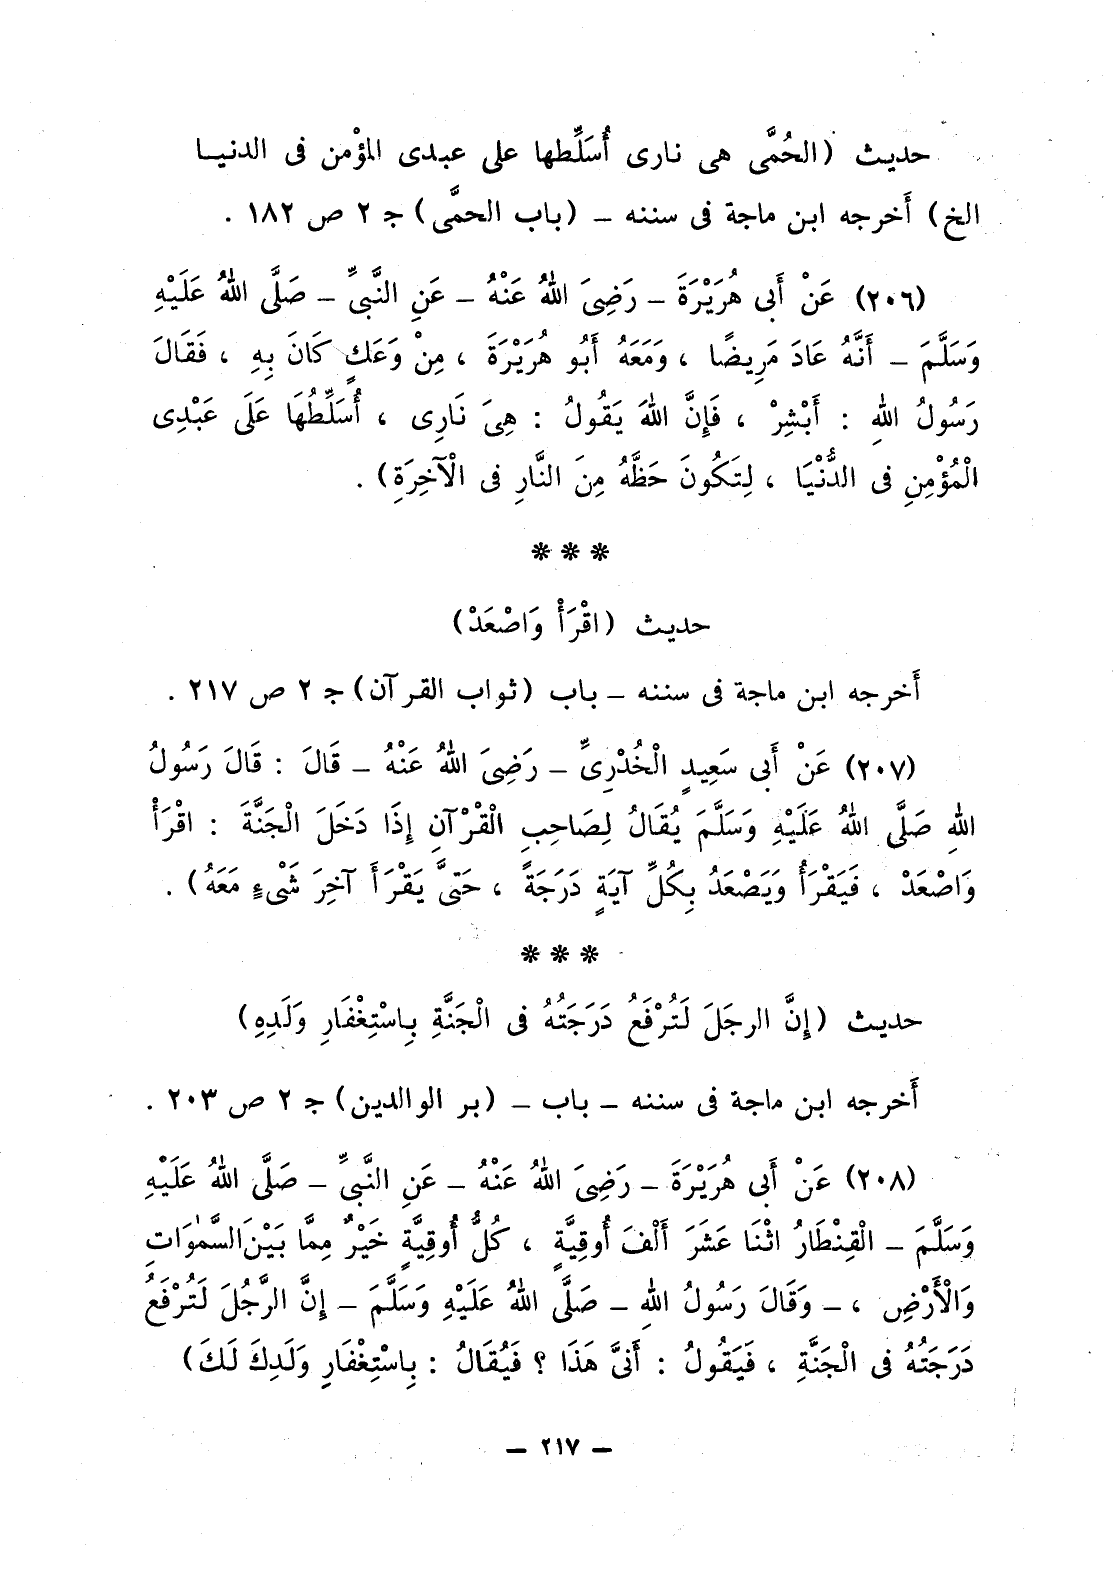 حديث (الحُمَّى هى نارى أُسَلِّطها على عبدى المؤْمن فى الدنيا
الخ) أَخرجه ابن ماجة فى سننه – (باب الحمَّى) جـ ٢ ص ١٨٢ .
(٢٠٦) عَنْ أَبى هُرَيْرَةَ – رَضِىَ اللهُ عَنْهُ – عَنِ النَّبىِّ – صَلَّى اللهُ عَلَيْهِ
وَسَلَّمَ – أَنَّهُ عَادَ مَرِيضًا ، وَمَعَهُ أَبُو هُرَيْرَةَ ، مِنْ وَعَكٍ كَانَ بِهِ ، فَقَالَ
رَسُولُ اللهِ : أَبْشِرْ ، فَإِنَّ اللهَ يَقُولُ : هِىَ نَارِى ، أُسَلِّطُهَا عَلَى عَبْدِى
الْمُؤْمِنِ فى الدُّنْيَا ، لِتَكُونَ حَظَّهُ مِنَ النَّارِ فى الْآخِرَةِ) .
* * *
حديث (اقْرَأْ وَاصْعَدْ)
أَخرجه ابن ماجة فى سننه – باب (ثواب القرآن) جـ ٢ ص ٢١٧ .
(٢٠٧) عَنْ أَبى سَعِيدٍ الْخُدْرِىِّ – رَضِىَ اللهُ عَنْهُ – قَالَ : قَالَ رَسُولُ
اللهِ صَلَّى اللهُ عَلَيْهِ وَسَلَّمَ يُقَالُ لِصَاحِبِ الْقُرْآنِ إِذَا دَخَلَ الْجَنَّةَ : اقْرَأْ
وَاصْعَدْ ، فَيَقْرَأُ وَيَصْعَدُ بِكُلِّ آيَةٍ دَرَجَةً ، حَتىَّ يَقْرَأَ آخِرَ شَىْءٍ مَعَهُ) .
* * *
حديث (إِنَّ الرجَلَ لَتُرْفَعُ دَرَجَتُهُ فى الْجَنَّةِ بِاسْتِغْفَارِ وَلَدِهِ)
أَخرجه ابن ماجة فى سننه – باب – (بر الوالدين) جـ ٢ ص ٢٠٣ .
(٢٠٨) عَنْ أَبى هُرَيْرَةَ – رَضِىَ اللهُ عَنْهُ – عَنِ النَّبىِّ – صَلَّى اللهُ عَلَيْهِ
وَسَلَّمَ – الْقِنْطَارُ اثْنَا عَشَرَ أَلْفَ أُوقِيَّةٍ ، كُلُّ أُوقِيَّةٍ خَيْرٌ مِمَّا بَيْنَ السَّمٰوَاتِ
وَالْأَرْضِ ، – وَقَالَ رَسُولُ اللهِ – صَلَّى اللهُ عَلَيْهِ وَسَلَّمَ – إِنَّ الرَّجُلَ لَتُرْفَعُ
دَرَجَتُهُ فى الْجَنَّةِ ، فَيَقُولُ : أَنىَّ هَذَا ؟ فَيُقَالُ : بِاسْتِغْفَارِ وَلَدِكَ لَكَ)
– ٢١٧ –